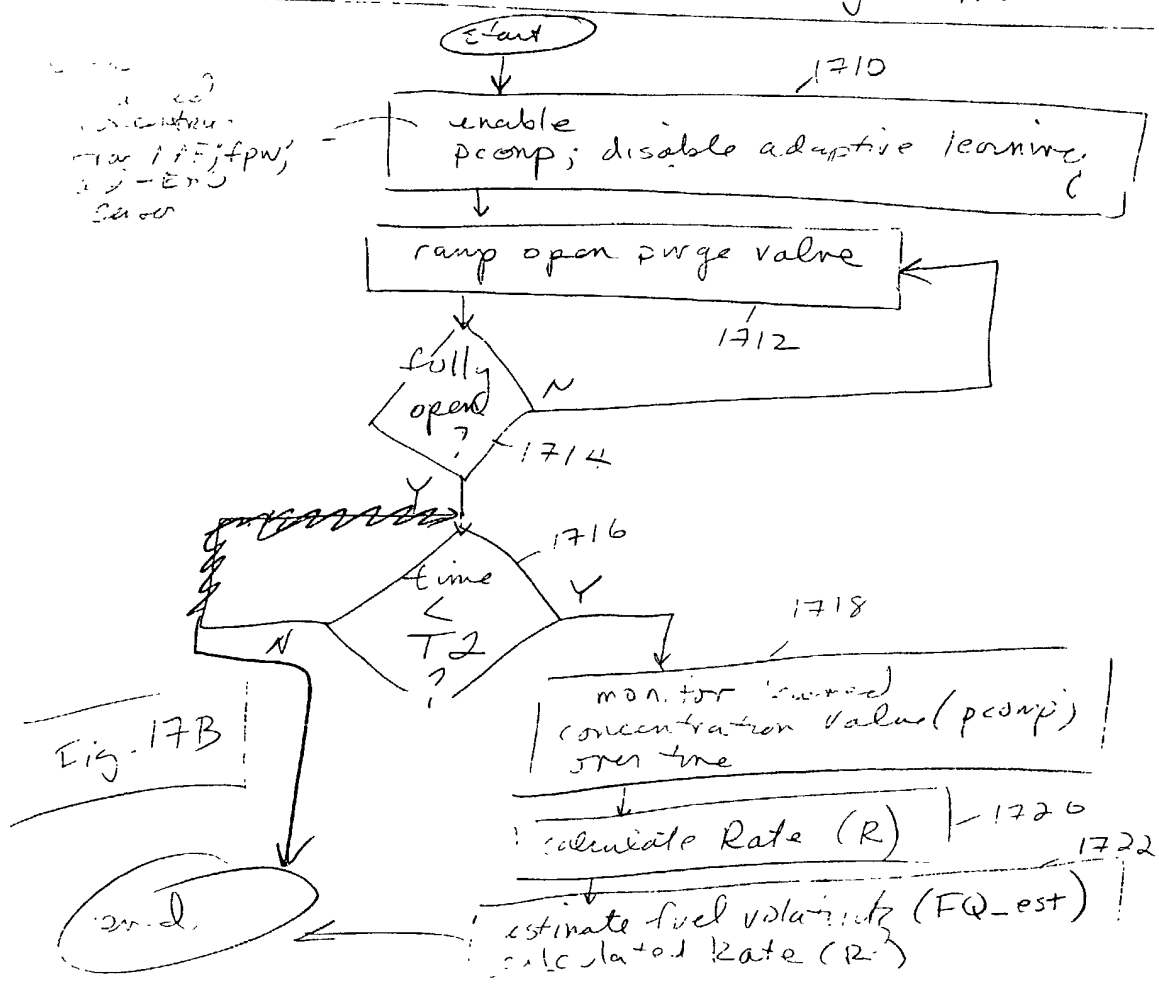 start
1710
enable
pcomp; disable adaptive learning
ramp open purge valve
1712
fully
open
?
N
1714
Y
1716
time
<
T2
?
Y
N
1718
monitor
concentration value (pcomp)
over time
Fig. 17B
calculate Rate (R)
1720
1722
estimate fuel volatility (FQ_est)
calculated Rate (R)
end.